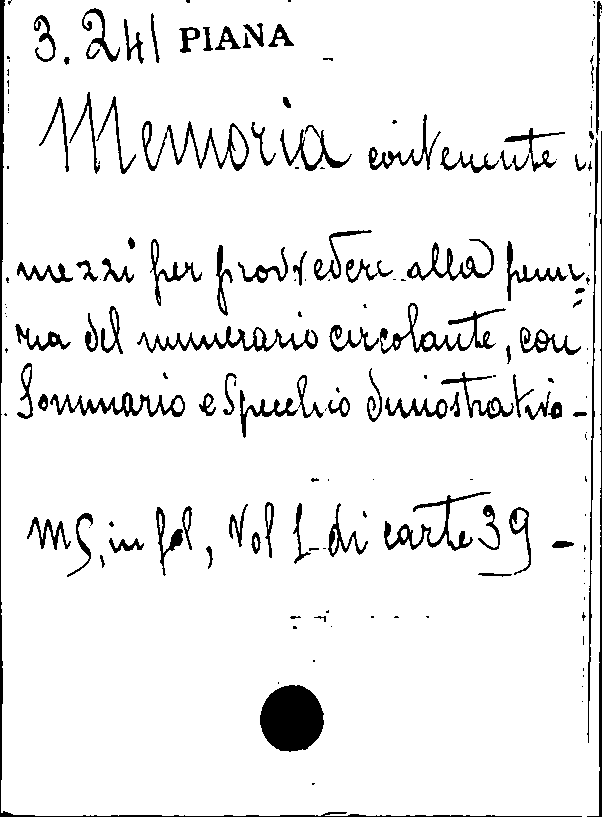 3.241 PIANA
Memoria contenente i
mezzi per provvedere alla penu=
ria del numerario circolante, con
Sommario e Specchio dimostrativo -
MS, in fol, Vol 1 di carte 39 -